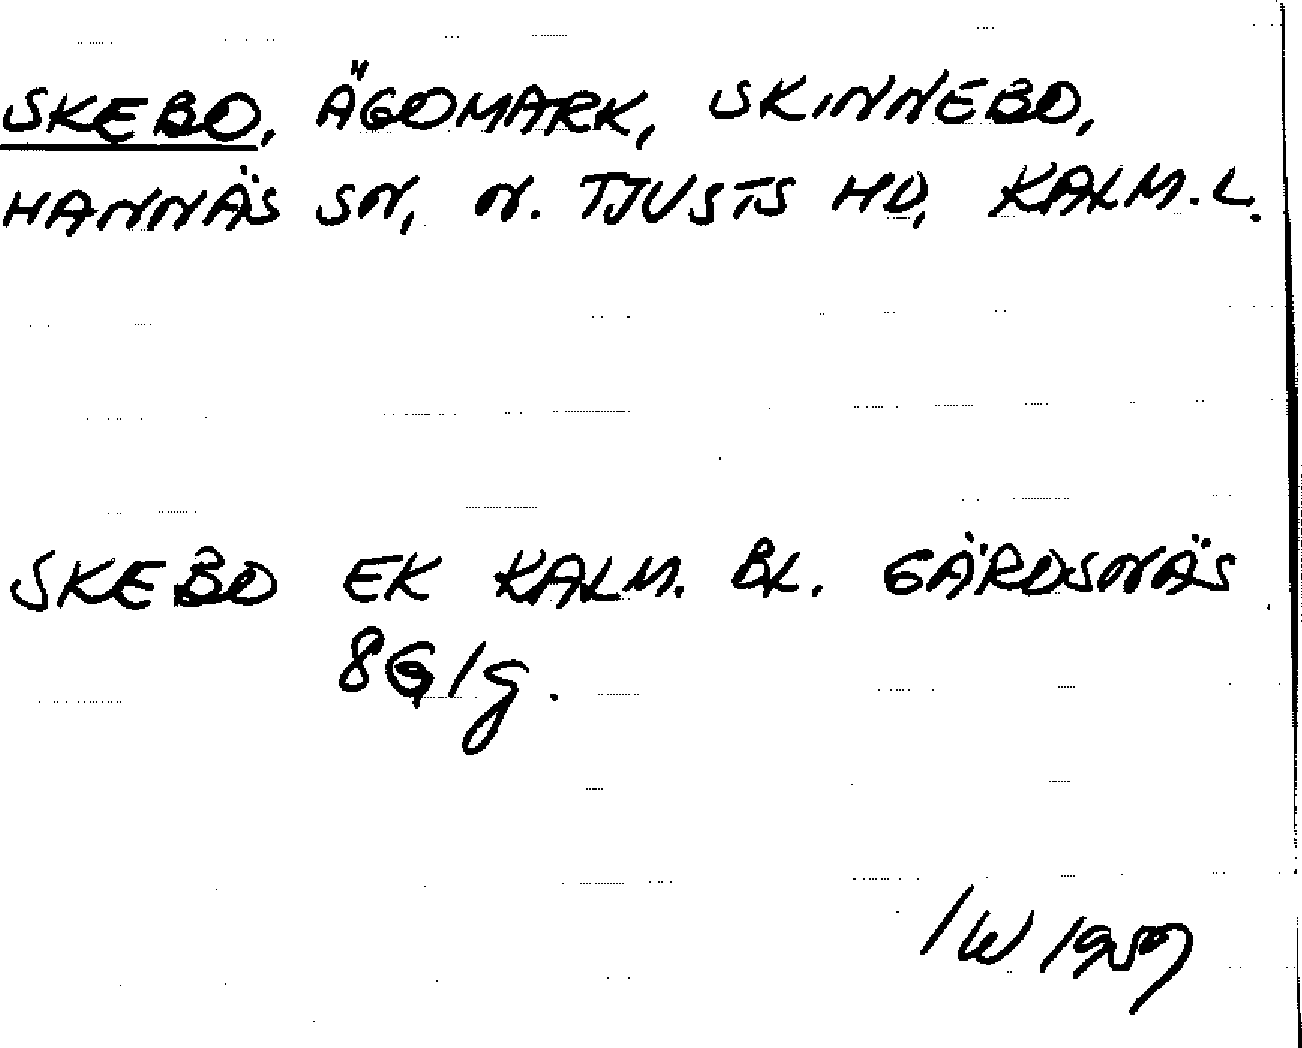 SKEBO, ÄGOMARK, SKINNEBO,
HANNÄS SN, N. TJUSTS HD, KALM. L.
SKEBO EK KALM. BL. GÄRDSNÄS
8G/g.
IW 1959